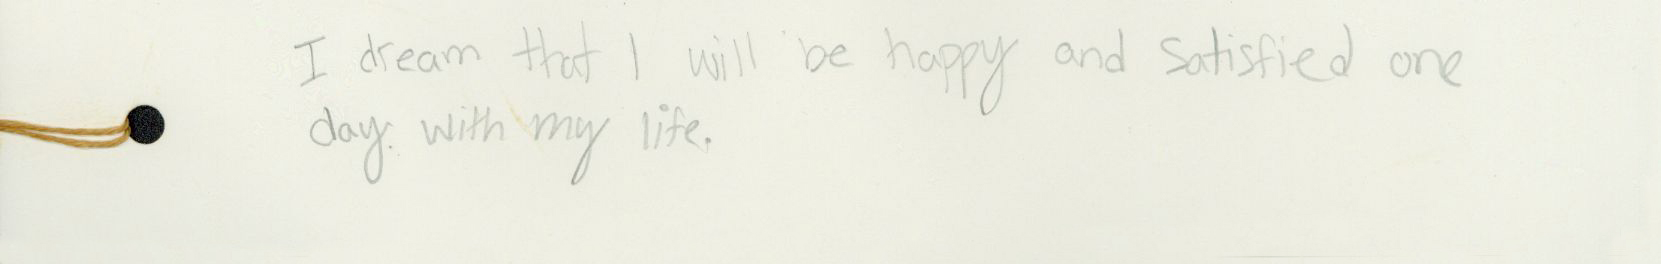 I dream that I will be happy and satisfied one
day. with my life.